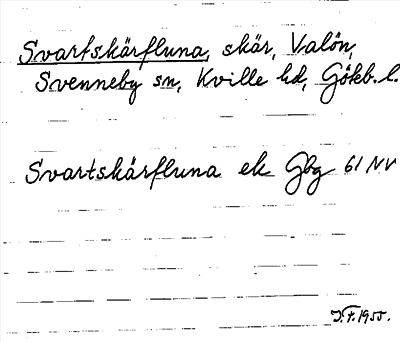 Svartskärfluna, skär, Valön,
Svenneby sn, Kville hd, Gökb. l.
Svartskärfluna ek Gbg 61 NV
J.F. 1955.